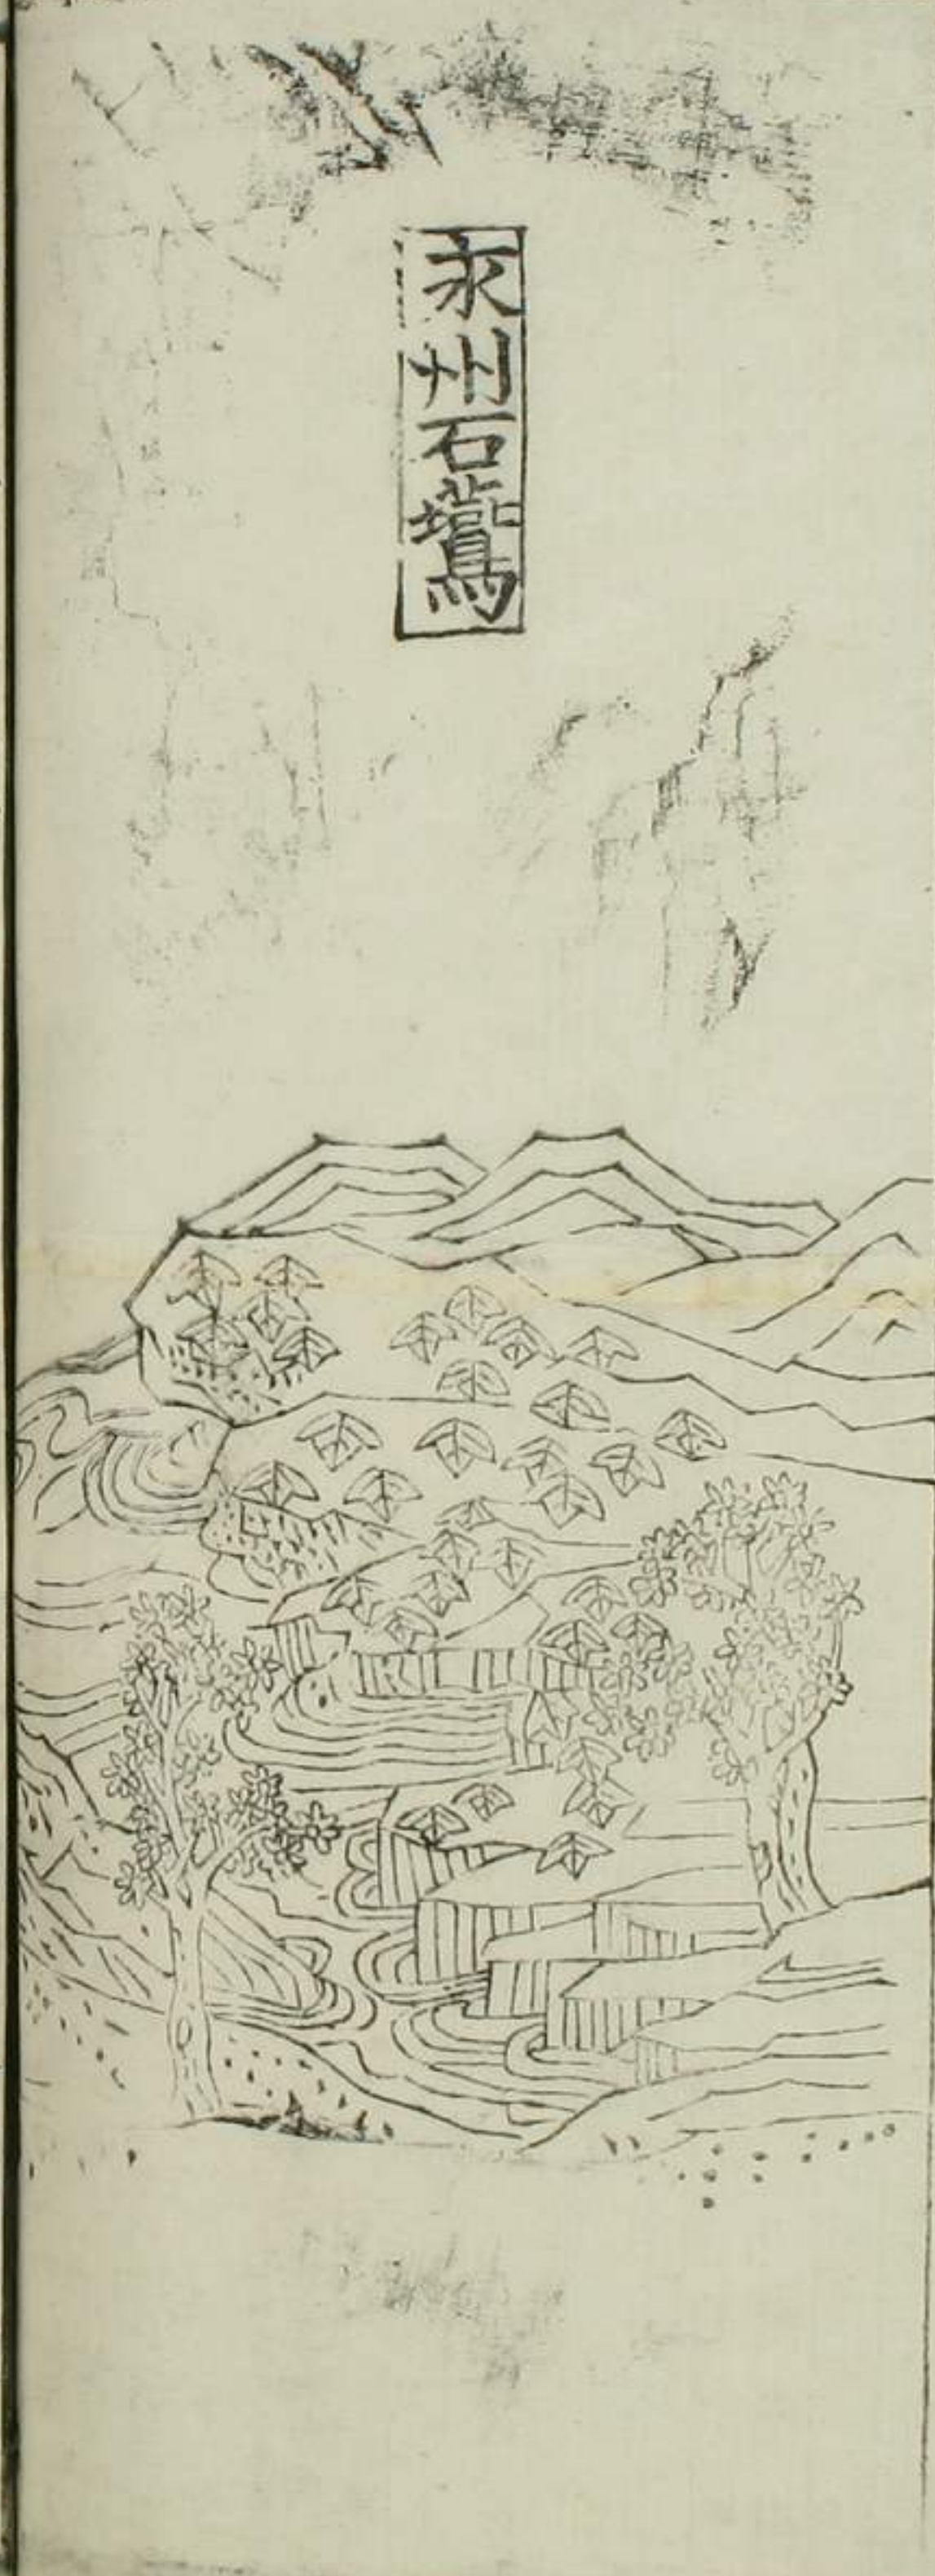 永州石鷰